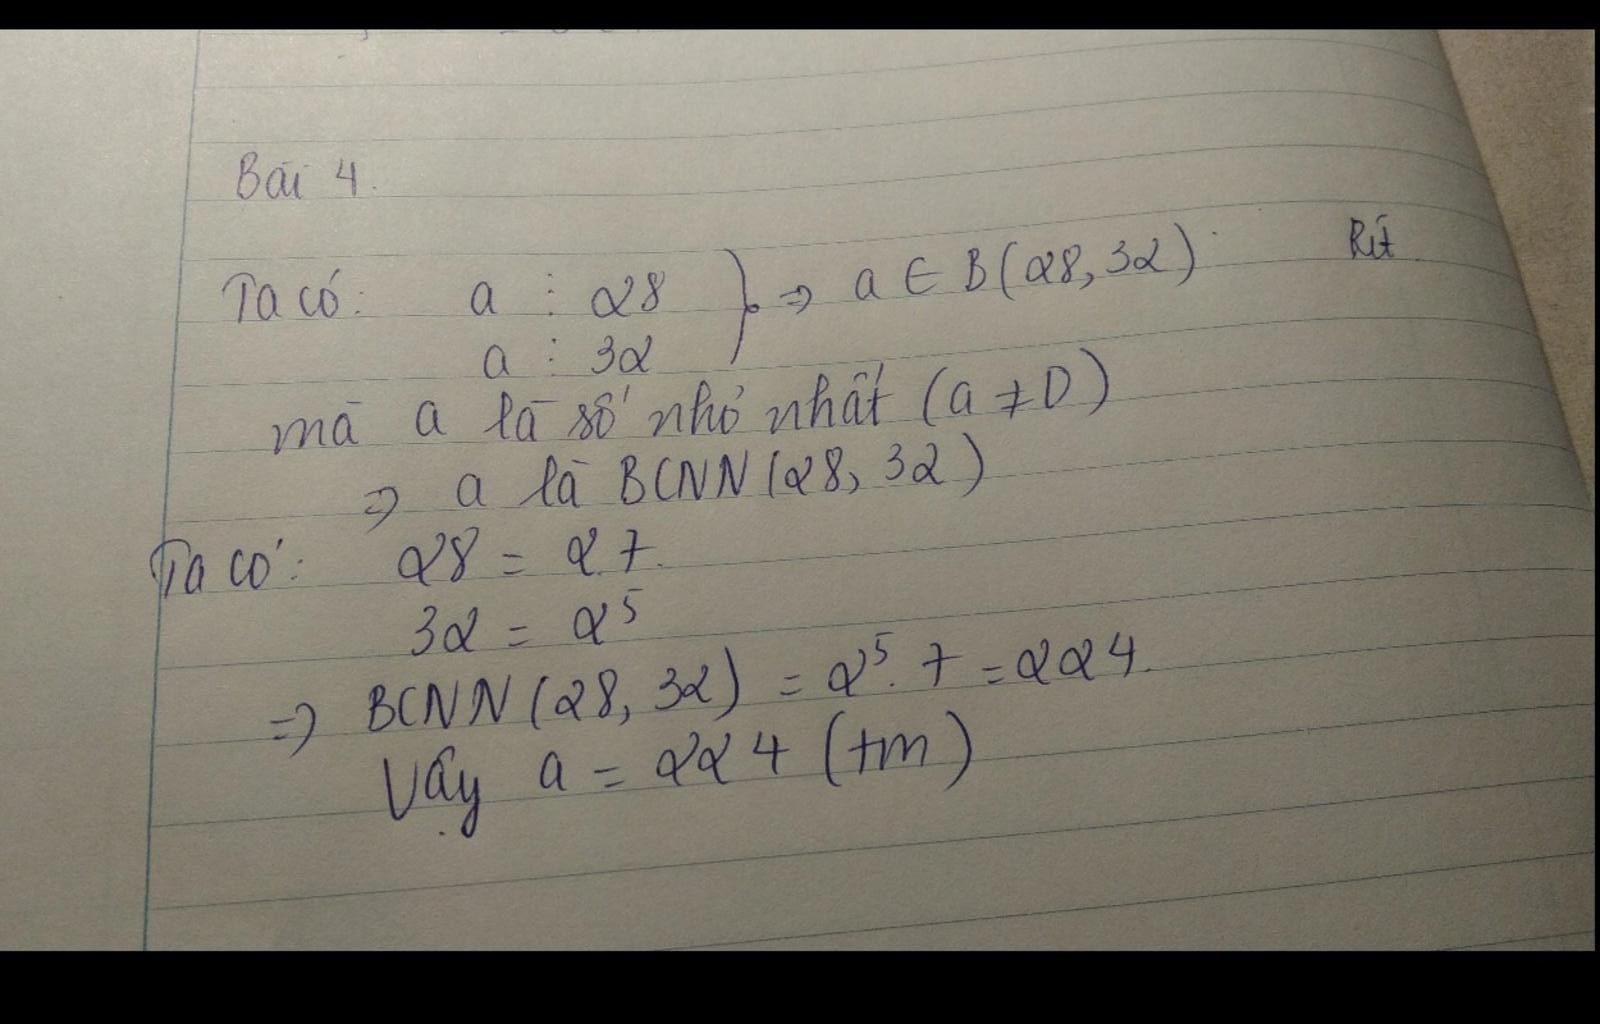 Bài 4.
Ta có: a ⋮ 28 } ⇒ a ∈ B(28, 32)
a ⋮ 32
mà a là số nhỏ nhất (a ≠ 0)
⇒ a là BCNN (28, 32)
Ta có: 28 = 2.7.
32 = 2⁵
⇒ BCNN (28, 32) = 2⁵. 7 = 224.
Vậy a = 224 (tm)